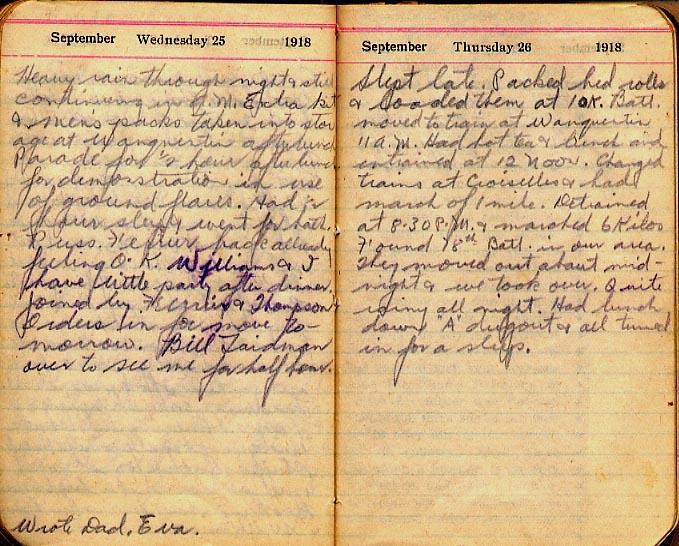 September Wednesday 25 1918
Heavy rain through night & still
continuing in A.M. Extra kit
& mens packs taken into stor
age at Wanquentin after lunch
Parade for ½ hour after lunch
for demonstration in use
of ground flares. Had
hour sleep & went for bath.
Russ. back already
feeling O.K. Williams & I
have little party after dinner.
Joined by & Thompson
Orders in for move to-
morrow. Bill Laidman
over to see me for half hour.
Wrote Dad, Eva.
September Thursday 26 1918
Slept late. Packed bed rolls
& loaded them at 10K. Batt.
moved to train at Wanquentin
11 A.M. Had hot tea & lunch and
entrained at 12 Noon. Changed
trains at Croiselles & had
march of 1 mile. Detrained
at 8.30 P.M. & marched 6 Kilos
F'ound 78th Batt. in our area.
They moved out about mid-
night & we took over. Quite
rainy all night. Had lunch
down "A" dugout & all turned
in for a sleep.